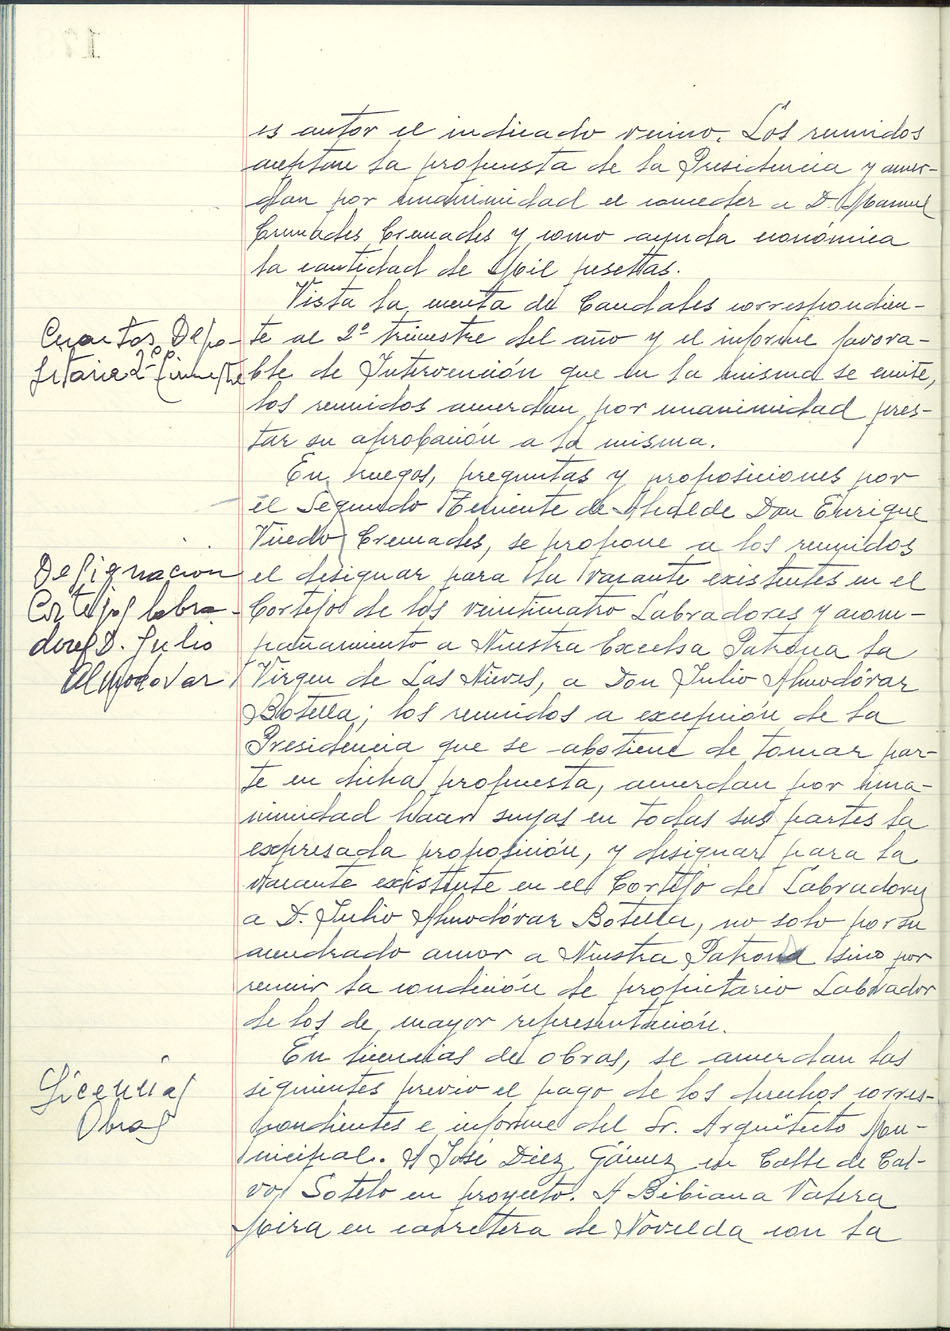 es autor el indicado vecino. Los reunidos
aceptan la propuesta de la Presidencia y acuer-
dan por unanimidad el conceder a D. Manuel
Cremades Cremades y como ayuda económica
la cantidad de Mil pesetas.
Vista la cuenta de Caudales correspondien-
Cuentas Depo-
te al 2º trimestre del año y el informe favora-
sitaria 2º Trimestre
ble de Intervención que en la misma se emite,
los reunidos acuerdan por unanimidad pres-
tar su aprobación a la misma.
En ruegos, preguntas y proposiciones por
el Segundo Teniente de Alcalde Don Enrique
Vicedo Cremades, se propone a los reunidos
Designación
el designar para la vacante existentes en el
Cortejos labra-
Cortejo de los veinticuatro Labradores y acom-
dores D. Julio
pañamiento a Nuestra Excelsa Patrona la
Almodóvar
Virgen de Las Nieves, a Don Julio Almodóvar
Botella; los reunidos a excepción de la
Presidencia que se abstiene de tomar par-
te en dicha propuesta, acuerdan por una-
nimidad hacer suyas en todas sus partes la
expresada proposición, y designar para la
vacante existente en el Cortejo de Labradores
a D. Julio Almodóvar Botella, no solo por su
acendrado amor a Nuestra Patrona sino por
reunir la condición de propietario Labrador
de los de mayor representación.
En licencias de obras, se acuerdan las
Licencias
siguientes previo el pago de los derechos corres-
Obras
pondientes e informe del Sr. Arquitecto Mu-
nicipal. A José Diez Gómez en Calle de Cal-
vo Sotelo en proyecto. A Bibiana Valera
Mira en carretera de Novelda con la